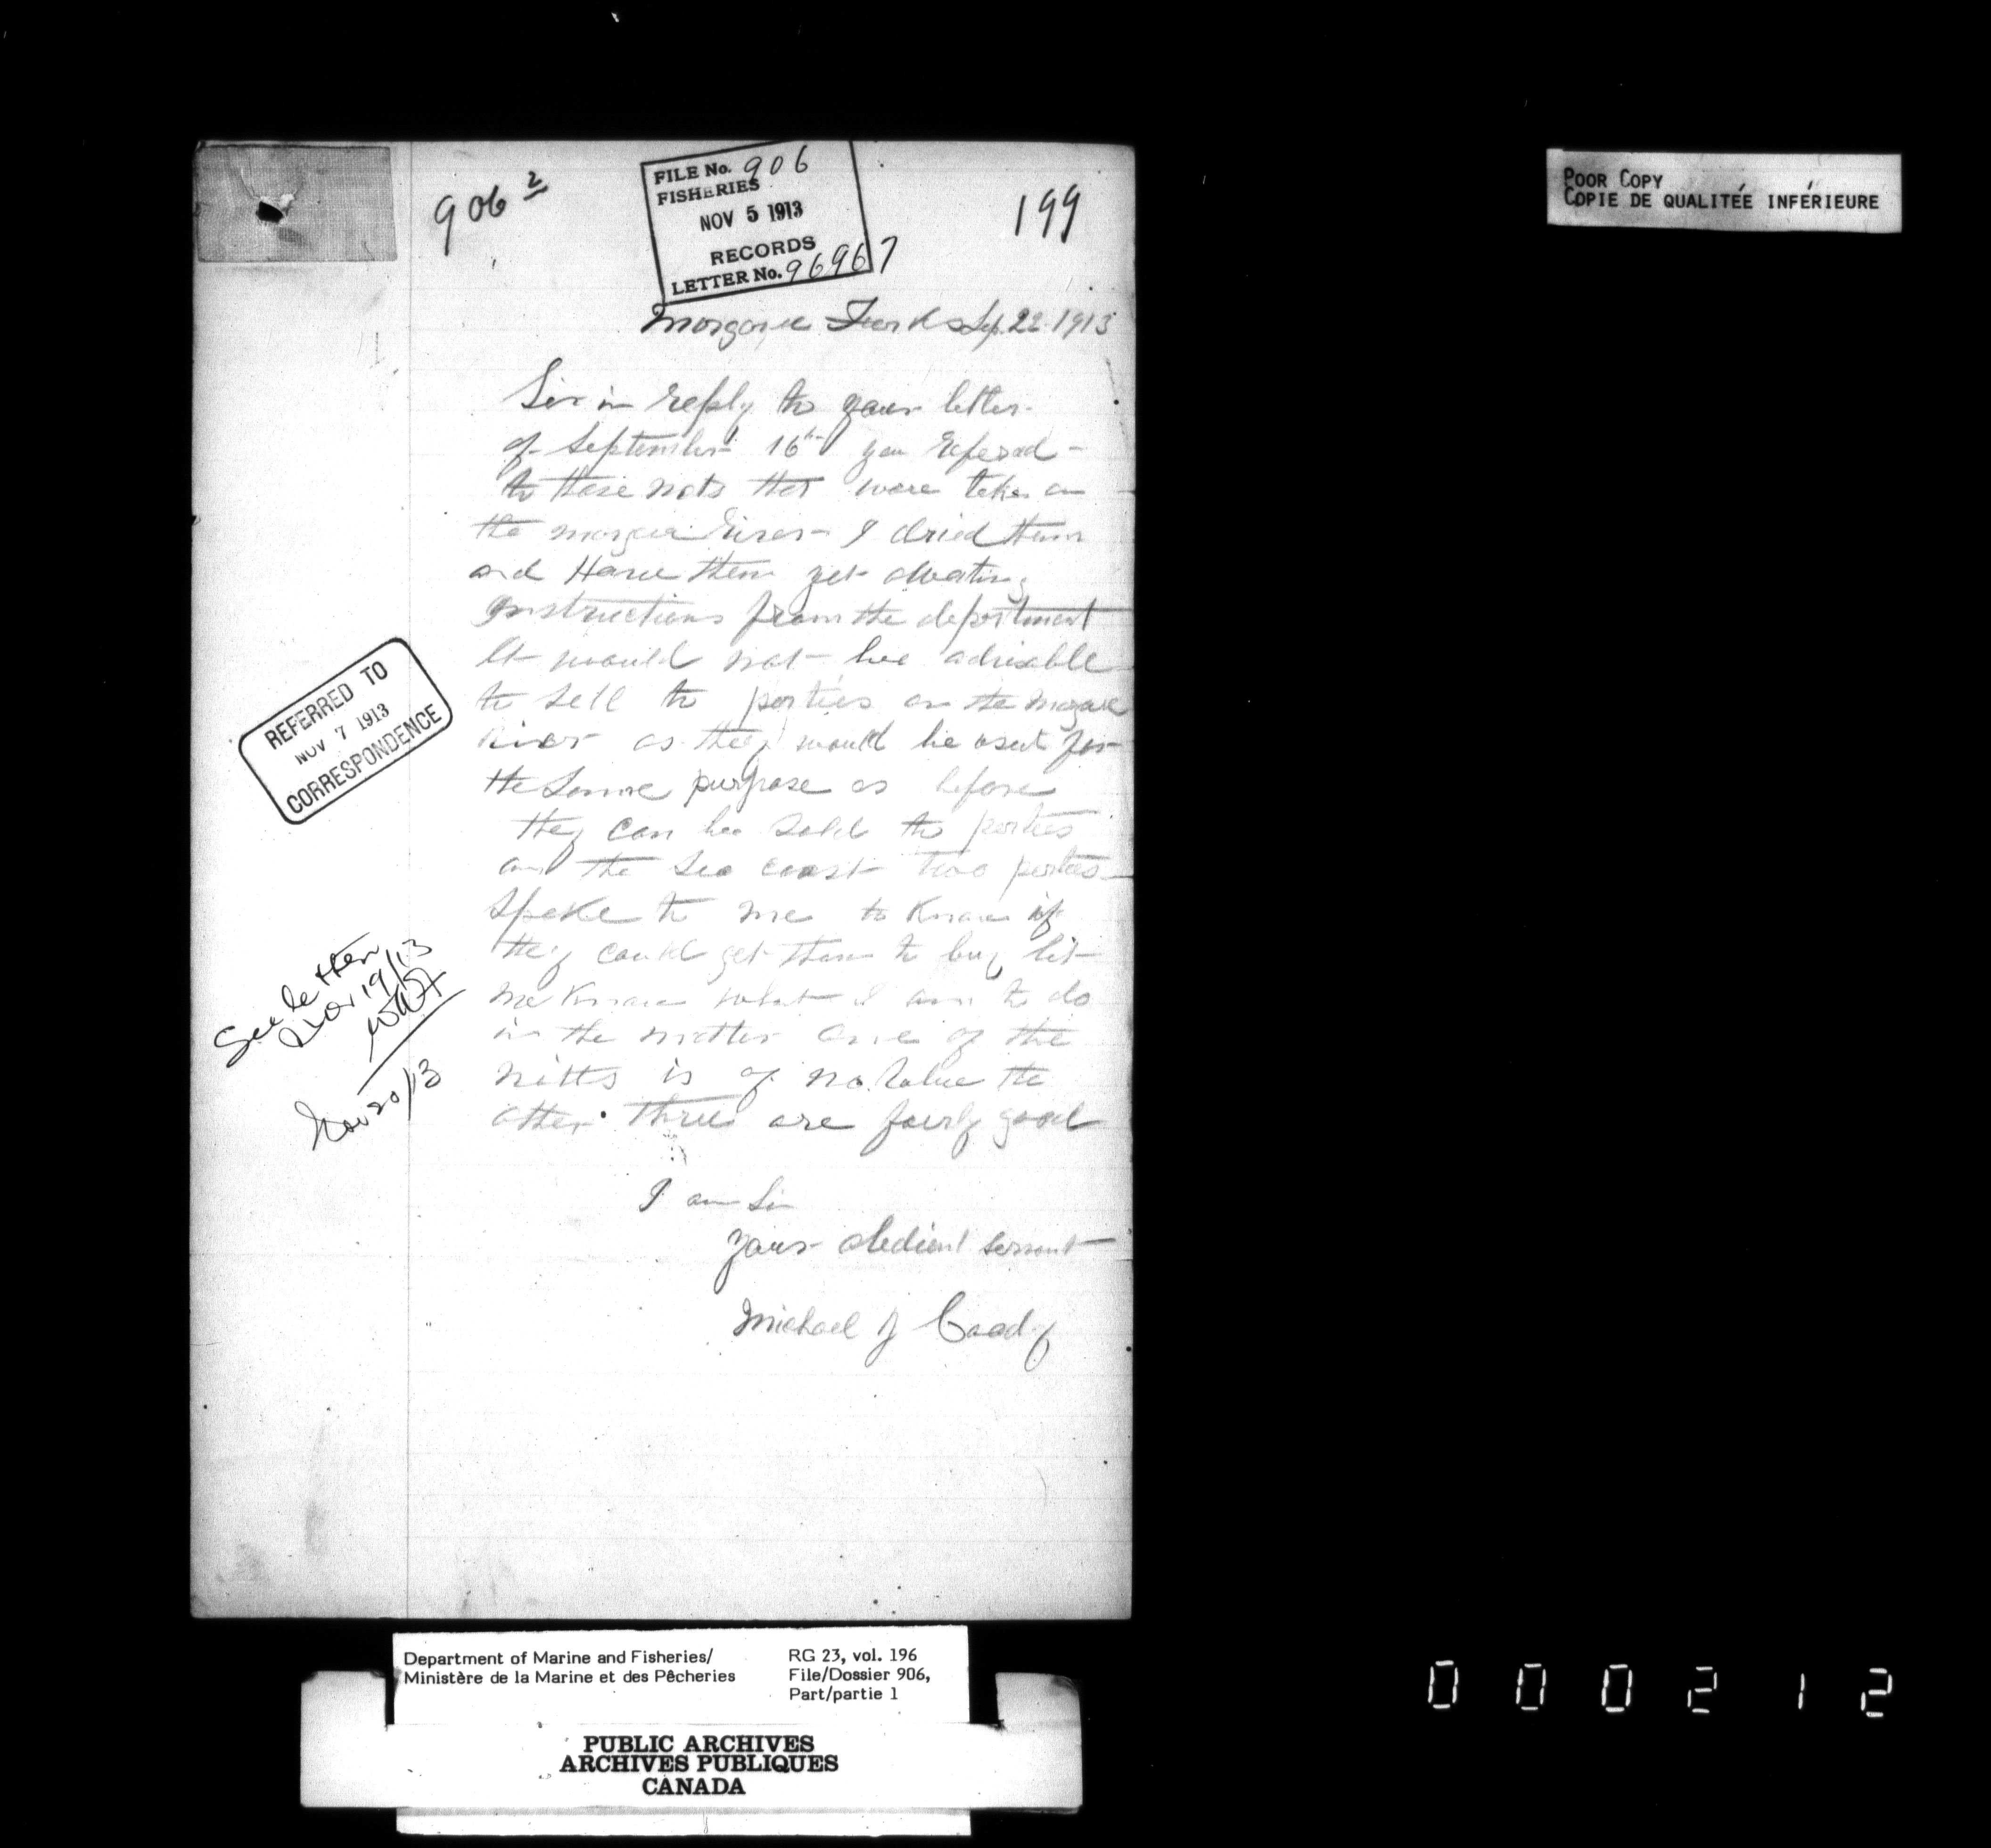 POOR COPY
COPIE DE QUALITÉE INFÉRIEURE
906 2
FILE No. 906
FISHERIES
NOV 5 1913
RECORDS
LETTER No. 96967
199
Margaree Forks Sep. 22 1913
Sir in reply to your letter
of September 16th you refered
to those nets that were taken on
the margaree River I dried them
and Have them yet awating
instructions from the department
It would not be advisable
to sell to parties on the margaree
River as they would be used for
the same purpose as before
they can be sold to parties
on the sea coast two parties
spoke to me to know if
they could get them to buy let
me know what I am to do
in the matter one of the
netts is of no value the
other three are fairly good
I am Sir
your obedient servant
Michael J Coady
REFERRED TO
NOV 7 1913
CORRESPONDENCE
See letter
Nov 19/13
Nov 20/13
Department of Marine and Fisheries/
Ministère de la Marine et des Pêcheries
RG 23, vol. 196
File/Dossier 906,
Part/partie 1
PUBLIC ARCHIVES
ARCHIVES PUBLIQUES
CANADA
000212